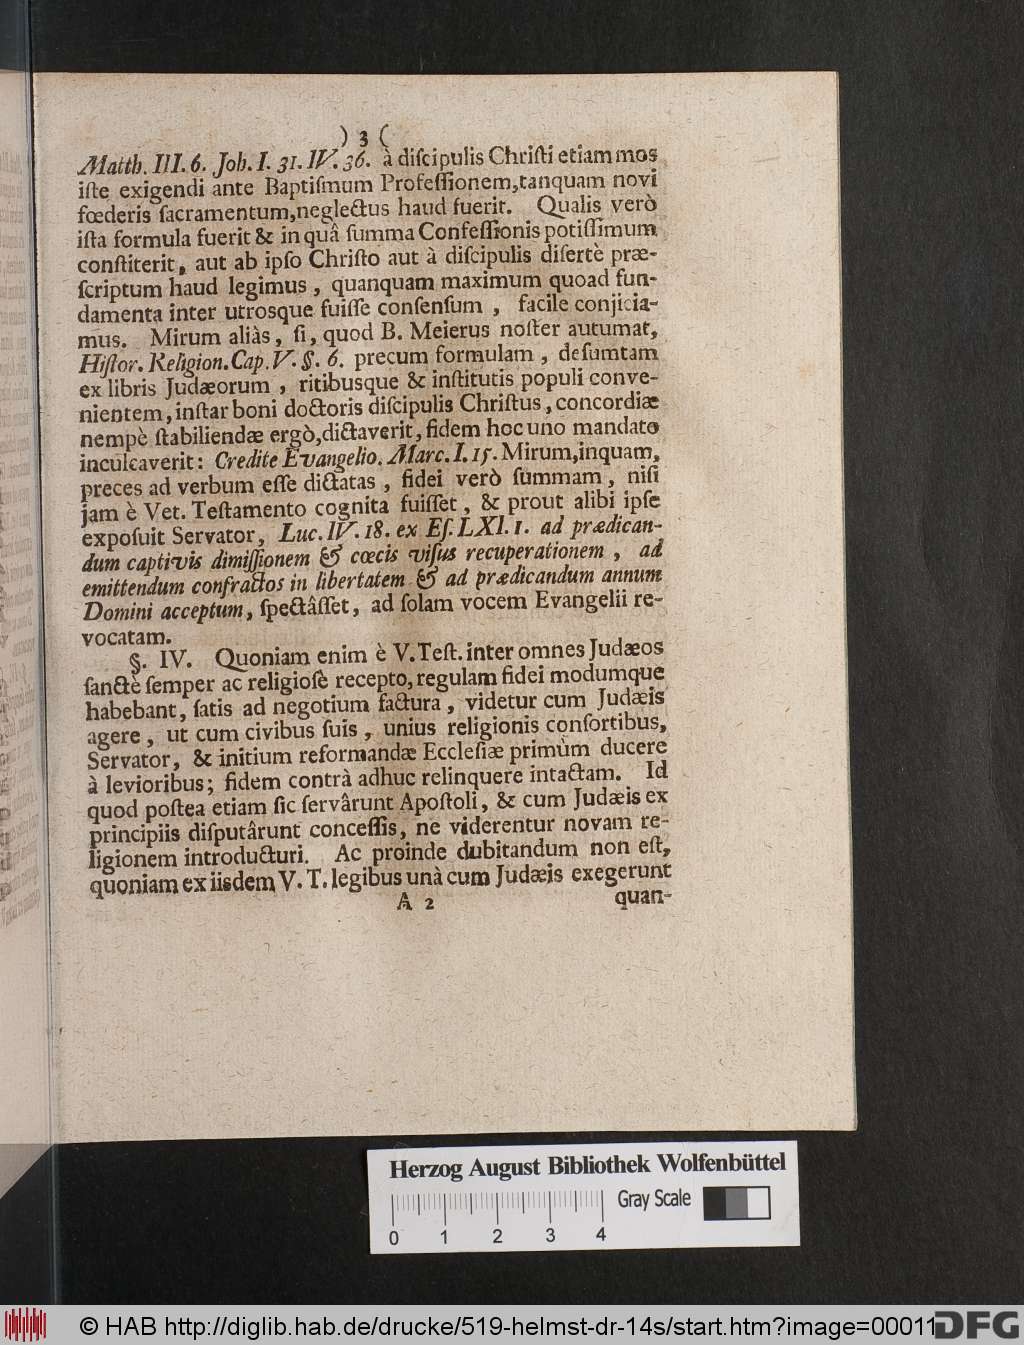 ) 3 (
Matth. III. 6. Joh. I. 31. IV. 36. à diſcipulis Chriſti etiam mos
iſte exigendi ante Baptiſmum Profeſſionem, tanquam novi
fœderis ſacramentum, neglectus haud fuerit. Qualis verò
iſta formula fuerit & in quâ ſumma Confeſſionis potiſſimum
conſtiterit, aut ab ipſo Chriſto aut à diſcipulis diſertè præ-
ſcriptum haud legimus, quanquam maximum quoad fun-
damenta inter utrosque fuiſſe conſenſum, facile conjicia-
mus. Mirum aliàs, ſi, quod B. Meierus noſter autumat,
Hiſtor. Religion. Cap. V. §. 6. precum formulam, deſumtam
ex libris Judæorum, ritibusque & inſtitutis populi conve-
nientem, inſtar boni doctoris diſcipulis Chriſtus, concordiæ
nempè ſtabiliendæ ergò, dictaverit, fidem hoc uno mandato
inculcaverit: Credite Evangelio. Marc. I. 15. Mirum, inquam,
preces ad verbum eſſe dictatas, fidei verò ſummam, niſi
jam è Vet. Teſtamento cognita fuiſſet, & prout alibi ipſe
expoſuit Servator, Luc. IV. 18. ex Eſ. LXI. 1. ad prædican-
dum captivis dimiſſionem & cœcis viſus recuperationem, ad
emittendum confractos in libertatem & ad prædicandum annum
Domini acceptum, ſpectâſſet, ad ſolam vocem Evangelii re-
vocatam.
§. IV. Quoniam enim è V. Teſt. inter omnes Judæos
ſanctè ſemper ac religioſè recepto, regulam fidei modumque
habebant, ſatis ad negotium factura, videtur cum Judæis
agere, ut cum civibus ſuis, unius religionis conſortibus,
Servator, & initium reformandæ Eccleſiæ primùm ducere
à levioribus; fidem contrà adhuc relinquere intactam. Id
quod poſtea etiam ſic ſervârunt Apoſtoli, & cum Judæis ex
principiis diſputârunt conceſſis, ne viderentur novam re-
ligionem introducturi. Ac proinde dubitandum non eſt,
quoniam ex iisdem V. T. legibus unà cum Judæis exegerunt
A 2 quan-
Herzog August Bibliothek Wolfenbüttel
Gray Scale
0 1 2 3 4
© HAB http://diglib.hab.de/drucke/519-helmst-dr-14s/start.htm?image=00011
DFG